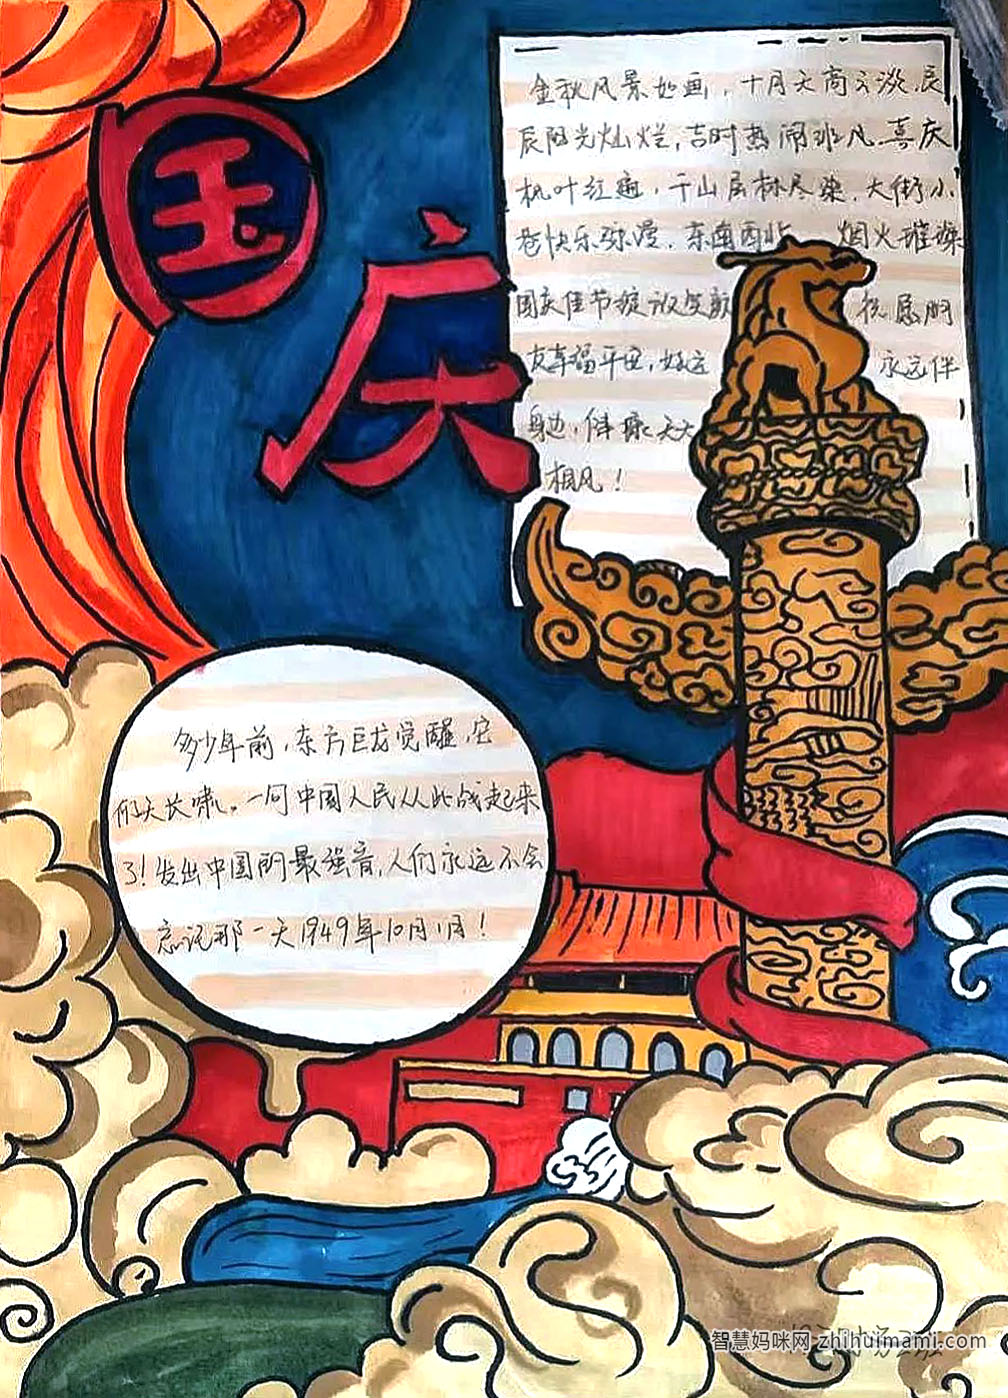 国庆
金秋风景如画，十月天高云淡，辰
辰阳光灿烂，吉时热闹非凡.喜庆
枫叶红遍，千山层林尽染，大街小
巷快乐弥漫，东南西北 烟火璀璨
国庆佳节绽放笑颜 祝愿朋
友幸福平安，好运 永远伴
身边，健康天天
相见！
多少年前，东方巨龙觉醒，它
仰天长啸，一句中国人民从此战起来
了！发出中国的最强音，人们永远不会
忘记那一天1949年10月1月！
智慧妈咪网 zhihuimami.com